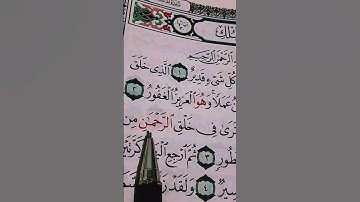 ـلك
ـهِ الرَّحْمَٰنِ الرَّحِيمِ
كُلِّ شَىْءٍ قَدِيرٌ ١ الَّذِى خَلَقَ
عَمَلًا وَهُوَ الْعَزِيزُ الْغَفُورُ ٢
تَرَىٰ فِى خَلْقِ الرَّحْمَٰنِ مِن
طُورٍ ٣ ثُمَّ ارْجِعِ كَرَّتَيْنِ
ـسِيرٌ ٤ وَلَقَدْ